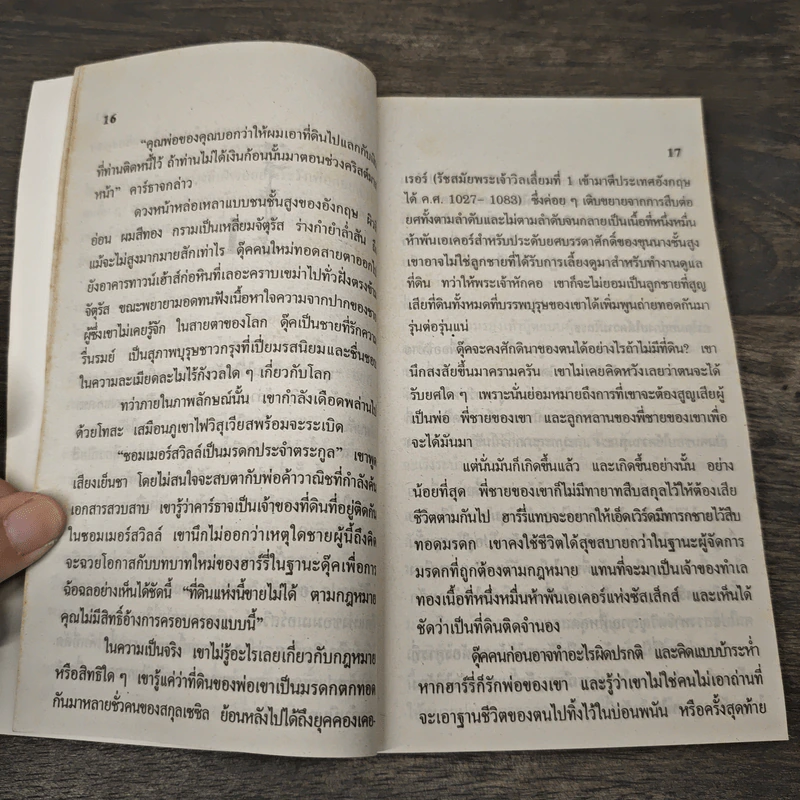 16
“คุณพ่อของคุณบอกว่าให้ผมเอาที่ดินไปแลกกับ
ที่ท่านติดหนี้ไว้ ถ้าท่านไม่ได้เงินก้อนนั้นมาตอนช่วงคริสต์มาส
หน้า” คาร์ธาจกล่าว
ดวงหน้าหล่อเหลาแบบชนชั้นสูงของอังกฤษ
อ่อน ผมสีทอง กรามเป็นเหลี่ยมจัตุรัส ร่างกำยำล่ำสัน
แม้จะไม่สูงมากมายสักเท่าไร ดุ๊คคนใหม่ทอดสายตาออก
ยังอาคารทาวน์เฮ้าส์ก่อหินที่เลอะคราบเขม่าไปทั่วฝั่งตรงข้าม
จัตุรัส ขณะพยายามอดทนฟังเนื้อหาใจความจากปากของชาย
ผู้ซึ่งเขาไม่เคยรู้จัก ในสายตาของโลก ดุ๊คเป็นชายที่รักความ
รื่นรมย์ เป็นสุภาพบุรุษชาวกรุงที่เปี่ยมรสนิยมและชื่นชอบ
ในความละเมียดละไมไร้กังวลใด ๆ เกี่ยวกับโลก
ทว่าภายในภาพลักษณ์นั้น เขากำลังเดือดพล่านไป
ด้วยโทสะ เสมือนภูเขาไฟวิสุเวียสพร้อมจะระเบิด
“ซอมเมอร์สวิลล์เป็นมรดกประจำตระกูล” เขาพูด
เสียงเย็นชา โดยไม่สนใจจะสบตากับพ่อค้าวาณิชที่กำลังค้น
เอกสารสวบสาบ เขารู้ว่าคาร์ธาจเป็นเจ้าของที่ดินที่อยู่ติดกัน
ในซอมเมอร์สวิลล์ เขานึกไม่ออกว่าเหตุใดชายผู้นี้ถึงคิด
จะฉวยโอกาสกับบทบาทใหม่ของฮาร์รี่ในฐานะดุ๊คเพื่อการ
ฉ้อฉลอย่างเห็นได้ชัดนี้ “ที่ดินแห่งนี้ขายไม่ได้ ตามกฎหมาย
คุณไม่มีสิทธิ์อ้างการครอบครองแบบนี้”
ในความเป็นจริง เขาไม่รู้อะไรเลยเกี่ยวกับกฎหมาย
หรือสิทธิใด ๆ เขารู้แค่ว่าที่ดินของพ่อเขาเป็นมรดกตกทอด
กันมาหลายชั่วคนของสกุลเซซิล ย้อนหลังไปได้ถึงยุคคองเคอ-
17
เรอร์ (รัชสมัยพระเจ้าวิลเลี่ยมที่ 1 เข้ามาตีประเทศอังกฤษ
ได้ ค.ศ. 1027- 1083) ซึ่งค่อย ๆ เติบขยายจากการสืบต่อ
ยศทั้งตามลำดับและไม่ตามลำดับจนกลายเป็นเนื้อที่หนึ่งหมื่น
ห้าพันเอเคอร์สำหรับประดับยศบรรดาศักดิ์ของขุนนางชั้นสูง
เขาอาจไม่ใช่ลูกชายที่ได้รับการเลี้ยงดูมาสำหรับทำงานดูแล
ที่ดิน ทว่าให้พระเจ้าหักคอ เขาก็จะไม่ยอมเป็นลูกชายที่สูญ
เสียที่ดินทั้งหมดที่บรรพบุรุษของเขาได้เพิ่มพูนถ่ายทอดกันมา
รุ่นต่อรุ่นแน่
ดุ๊คจะคงศักดินาของตนได้อย่างไรถ้าไม่มีที่ดิน? เขา
นึกสงสัยขึ้นมาครามครัน เขาไม่เคยคิดหวังเลยว่าตนจะได้
รับยศใด ๆ เพราะนั่นย่อมหมายถึงการที่เขาจะต้องสูญเสียผู้
เป็นพ่อ พี่ชายของเขา และลูกหลานของพี่ชายของเขาเพื่อ
จะได้มันมา
แต่นั่นมันก็เกิดขึ้นแล้ว และเกิดขึ้นอย่างนั้น อย่าง
น้อยที่สุด พี่ชายของเขาก็ไม่มีทายาทสืบสกุลไว้ให้ต้องเสีย
ชีวิตตามกันไป ฮาร์รี่แทบจะอยากให้เอ็ดเวิร์ดมีทารกชายไว้สืบ
ทอดมรดก เขาคงใช้ชีวิตได้สุขสบายกว่าในฐานะผู้จัดการ
มรดกที่ถูกต้องตามกฎหมาย แทนที่จะมาเป็นเจ้าของทำเล
ทองเนื้อที่หนึ่งหมื่นห้าพันเอเคอร์แห่งซัสเส็กส์ และเห็นได้
ชัดว่าเป็นที่ดินติดจำนอง
ดุ๊คคนก่อนอาจทำอะไรผิดปรกติ และคิดแบบบ้าระห่ำ
หากฮาร์รี่ก็รักพ่อของเขา และรู้ว่าเขาไม่ใช่คนไม่เอาถ่านที่
จะเอาฐานชีวิตของตนไปทิ้งไว้ในบ่อนพนัน หรือครั้งสุดท้าย